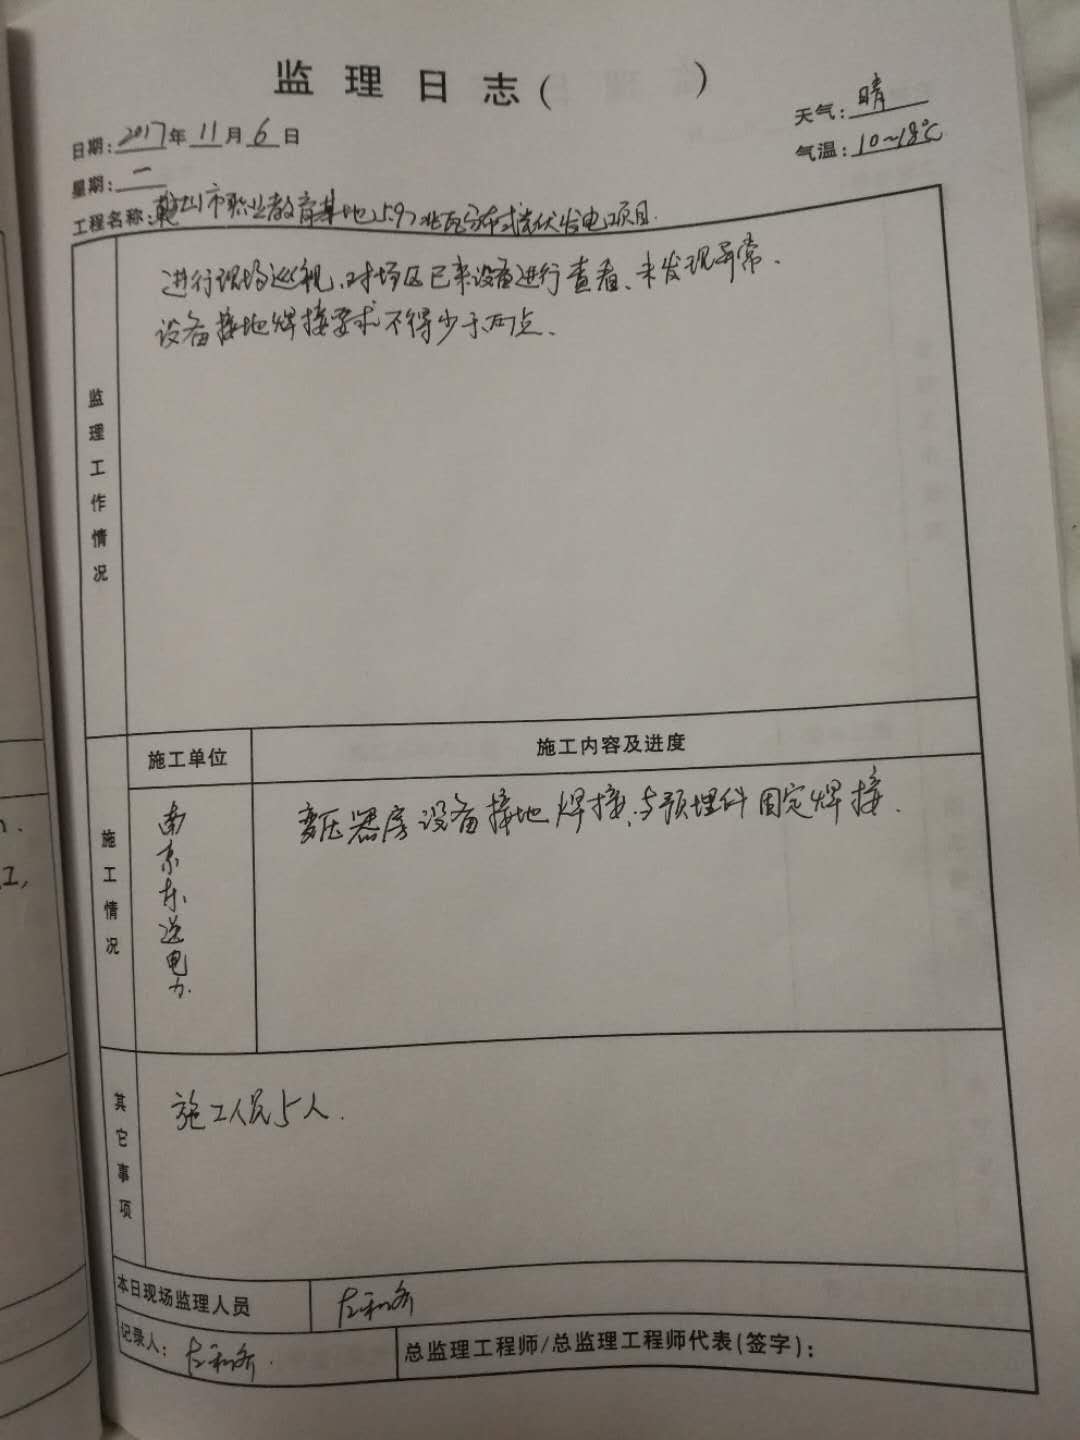 监理日志(          )
日期:2017年11月6日
天气:晴
星期:一
气温:10~18℃
工程名称:市职业教育基地5.97兆瓦分布式光伏发电项目.
监理工作情况
进行现场巡视、对场区已来设备进行查看、未发现异常.
设备接地焊接要求不得少于两点、
施工情况
施工单位
施工内容及进度
南京东送电力.
变压器房设备接地焊接、与预埋件固定焊接.
其它事项
施工人员5人.
本日现场监理人员
记录人:
总监理工程师/总监理工程师代表(签字):